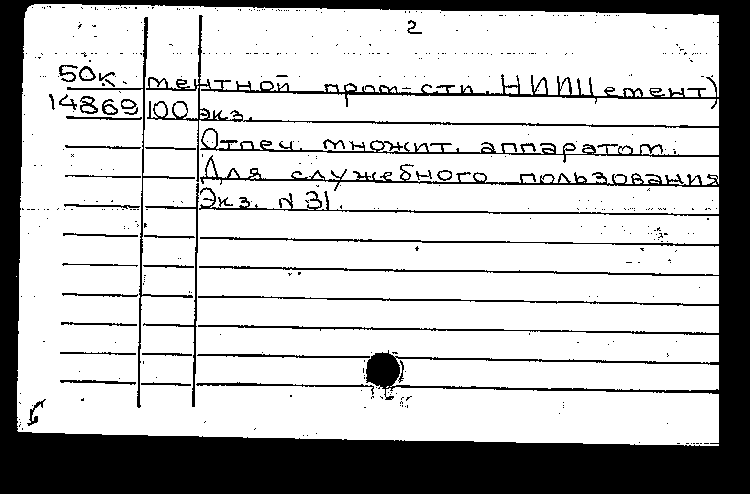 2
50к. тентной пром-сти. НИИЦемент)
14869 100 экз.
Отпеч. множит. аппаратом.
Для служебного пользования
Экз. N 31.